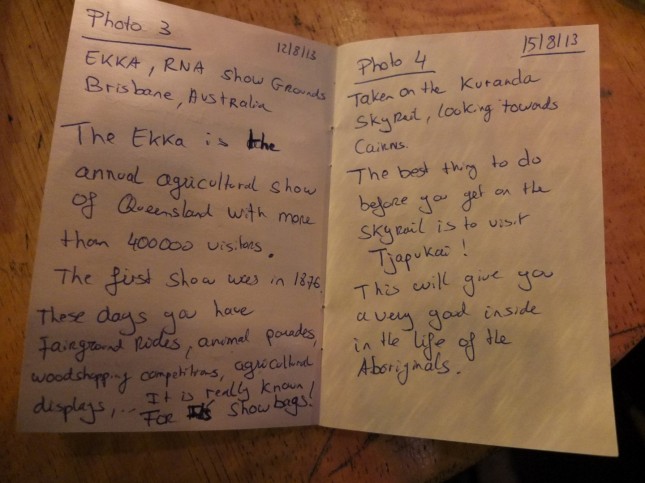 Photo 3
12/8/13
EKKA, RNA show Grounds
Brisbane, Australia
The Ekka is the
annual agricultural show
of Queensland with more
than 400000 visitors.
The first show was in 1876.
These days you have
Fairground Rides, animal parades,
woodshopping competitions, agricultural
displays, ... It is really known!
For its showbags!
Photo 4
15/8/13
Taken on the Kuranda
Skyrail, looking towards
Cairns.
The best thing to do
before you get on the
Skyrail is to visit
Tjapukai!
This will give you
a very good inside
in the life of the
Aboriginals.